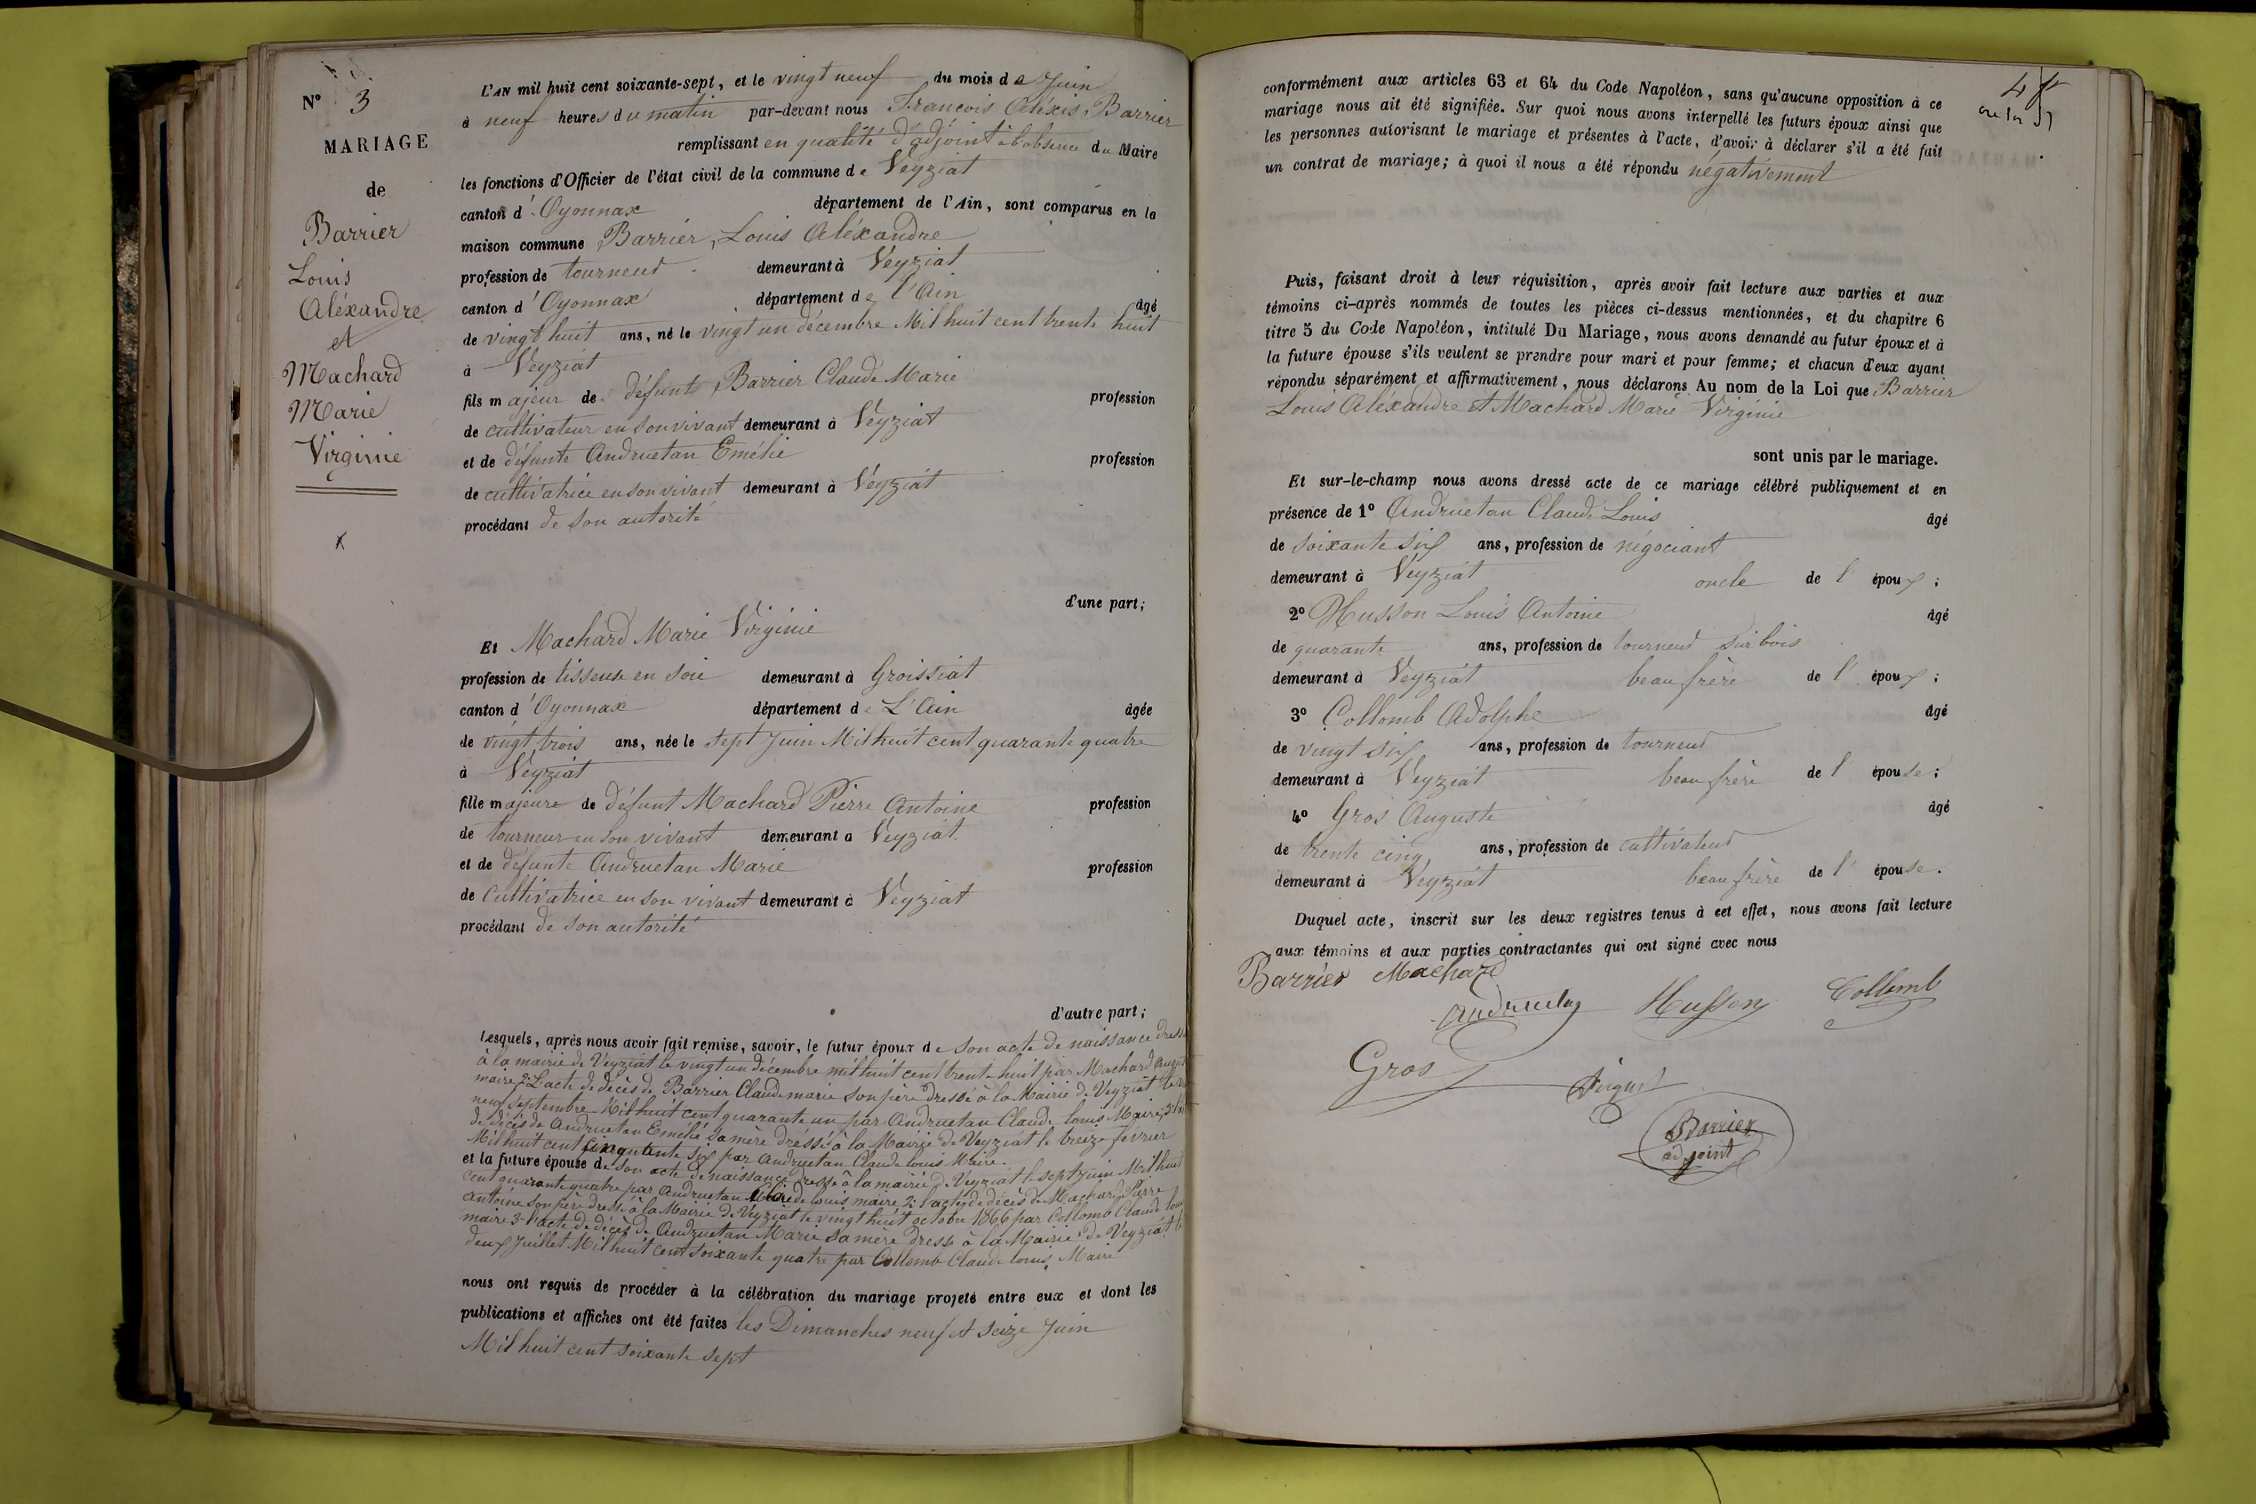 N° 3
MARIAGE
de
Barrier
Louis
Aléxandre
et
Machard
Marie
Virginie
L'AN mil huit cent soixante-sept, et le vingt neuf du mois de Juin
à neuf heures du matin par-devant nous François Aléxis Barrier
remplissant en qualité d'adjoint à l'absence du Maire
les fonctions d'Officier de l'état civil de la commune de Veyziat
canton d'Oyonnax département de l'Ain, sont comparus en la
maison commune Barrier, Louis Aléxandre
profession de tourneur demeurant à Veyziat
canton d'Oyonnax département de l'Ain âgé
de vingt huit ans, né le vingt un décembre Mil huit cent trente huit
à Veyziat
fils majeur de défunt Barrier Claude Marie profession
de cultivateur en son vivant demeurant à Veyziat
et de défunte Andruetan Emélie profession
de cultivatrice en son vivant demeurant à Veyziat
procédant de son autorité
d'une part;
Et Machard Marie Virginie
profession de tisseuse en soie demeurant à Groissiat
canton d'Oyonnax département de L'Ain âgée
de vingt trois ans, née le sept Juin Mil huit cent quarante quatre
à Veyziat
fille majeure de défunt Machard Pierre Antoine profession
de tourneur en son vivant demeurant à Veyziat
et de défunte Andruetan Marie profession
de Cultivatrice en son vivant demeurant à Veyziat
procédant de son autorité
d'autre part;
Lesquels, après nous avoir fait remise, savoir, le futur époux de son acte de naissance dressé
à la mairie de Veyziat le vingt un décembre mil huit cent trente huit par Machard
maire 2° L'acte de décès de Barrier Claude marie son père dressé à la Mairie de Veyziat le
neuf septembre Mil huit cent quarante un par Andruetan Claude louis Maire, 3°
de décès de Andruetan Emélie sa mère dréssé à la Mairie de Veyziat le treize février
Mil huit cent cinquante six par Andruetan Claude louis Maire.
et la future épouse de son acte de naissance dressé à la mairie de Veyziat le sept juin Mil huit
cent quarante quatre par Andruetan Claude louis maire 2° l'acte de décès de Machard Pierre
Antoine son père dressé à la Mairie de Veyziat le vingt huit octobre 1866 par Collomb Claude louis
maire 3° l'acte de décès de Andruetan Marie sa mère dressé à la Mairie de Veyziat le
deux Juillet Mil huit cent soixante quatre par Collomb Claude louis, Maire
nous ont requis de procéder à la célébration du mariage projeté entre eux et dont les
publications et affiches ont été faites les Dimanches neuf et seize Juin
Mil huit cent soixante sept
conformément aux articles 63 et 64 du Code Napoléon, sans qu'aucune opposition à ce
mariage nous ait été signifiée. Sur quoi nous avons interpellé les futurs époux ainsi que
les personnes autorisant le mariage et présentes à l'acte, d'avoir à déclarer s'il a été fait
un contrat de mariage; à quoi il nous a été répondu négativement
Puis, faisant droit à leur réquisition, après avoir fait lecture aux parties et aux
témoins ci-après nommés de toutes les pièces ci-dessus mentionnées, et du chapitre 6
titre 5 du Code Napoléon, intitulé Du Mariage, nous avons demandé au futur époux et à
la future épouse s'ils veulent se prendre pour mari et pour femme; et chacun d'eux ayant
répondu séparément et affirmativement, nous déclarons Au nom de la Loi que Barrier
Louis Aléxandre et Machard Marie Virginie
sont unis par le mariage.
Et sur-le-champ nous avons dressé acte de ce mariage célébré publiquement et en
présence de 1° Andruetan Claude Louis âgé
de soixante six ans, profession de négociant
demeurant à Veyziat oncle de l'époux;
2° Husson Louis Antoine âgé
de quarante ans, profession de tourneur sur bois
demeurant à Veyziat beau frère de l'époux;
3° Collomb Adolphe âgé
de vingt six ans, profession de tourneur
demeurant à Veyziat beau frère de l'épouse;
4° Gros Auguste âgé
de trente cinq ans, profession de cultivateur
demeurant à Veyziat beau frère de l'épouse.
Duquel acte, inscrit sur les deux registres tenus à cet effet, nous avons fait lecture
aux témoins et aux parties contractantes qui ont signé avec nous
Barrier Machard
Andruetan Husson Collomb
Gros
Barrier
adjoint